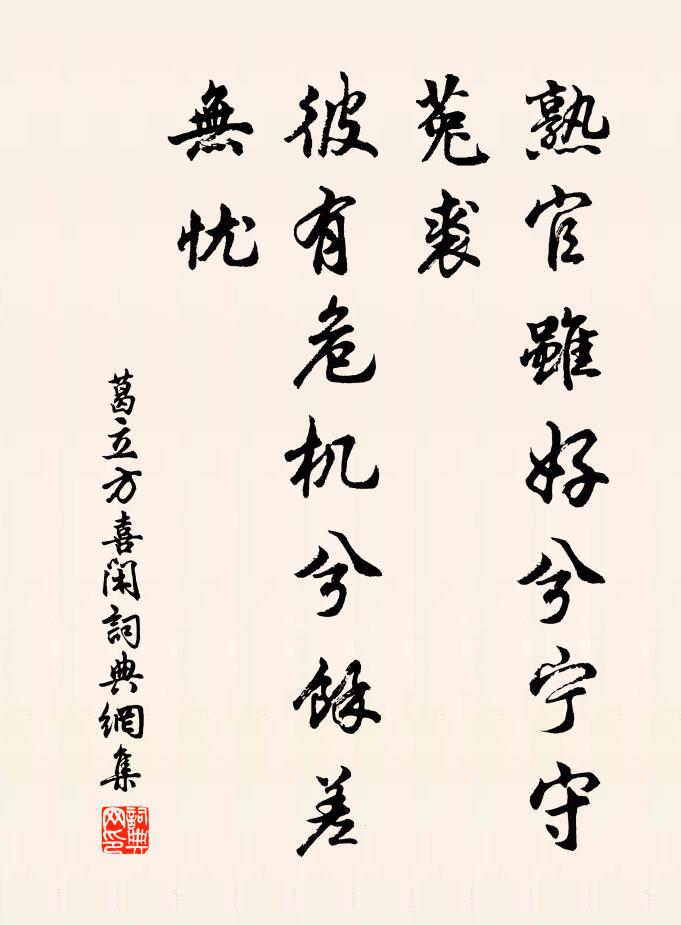 熟官雖好兮宁守
菟裘
彼有危机兮餘差
無忧
葛立方喜闲詞典網集
詞典网印